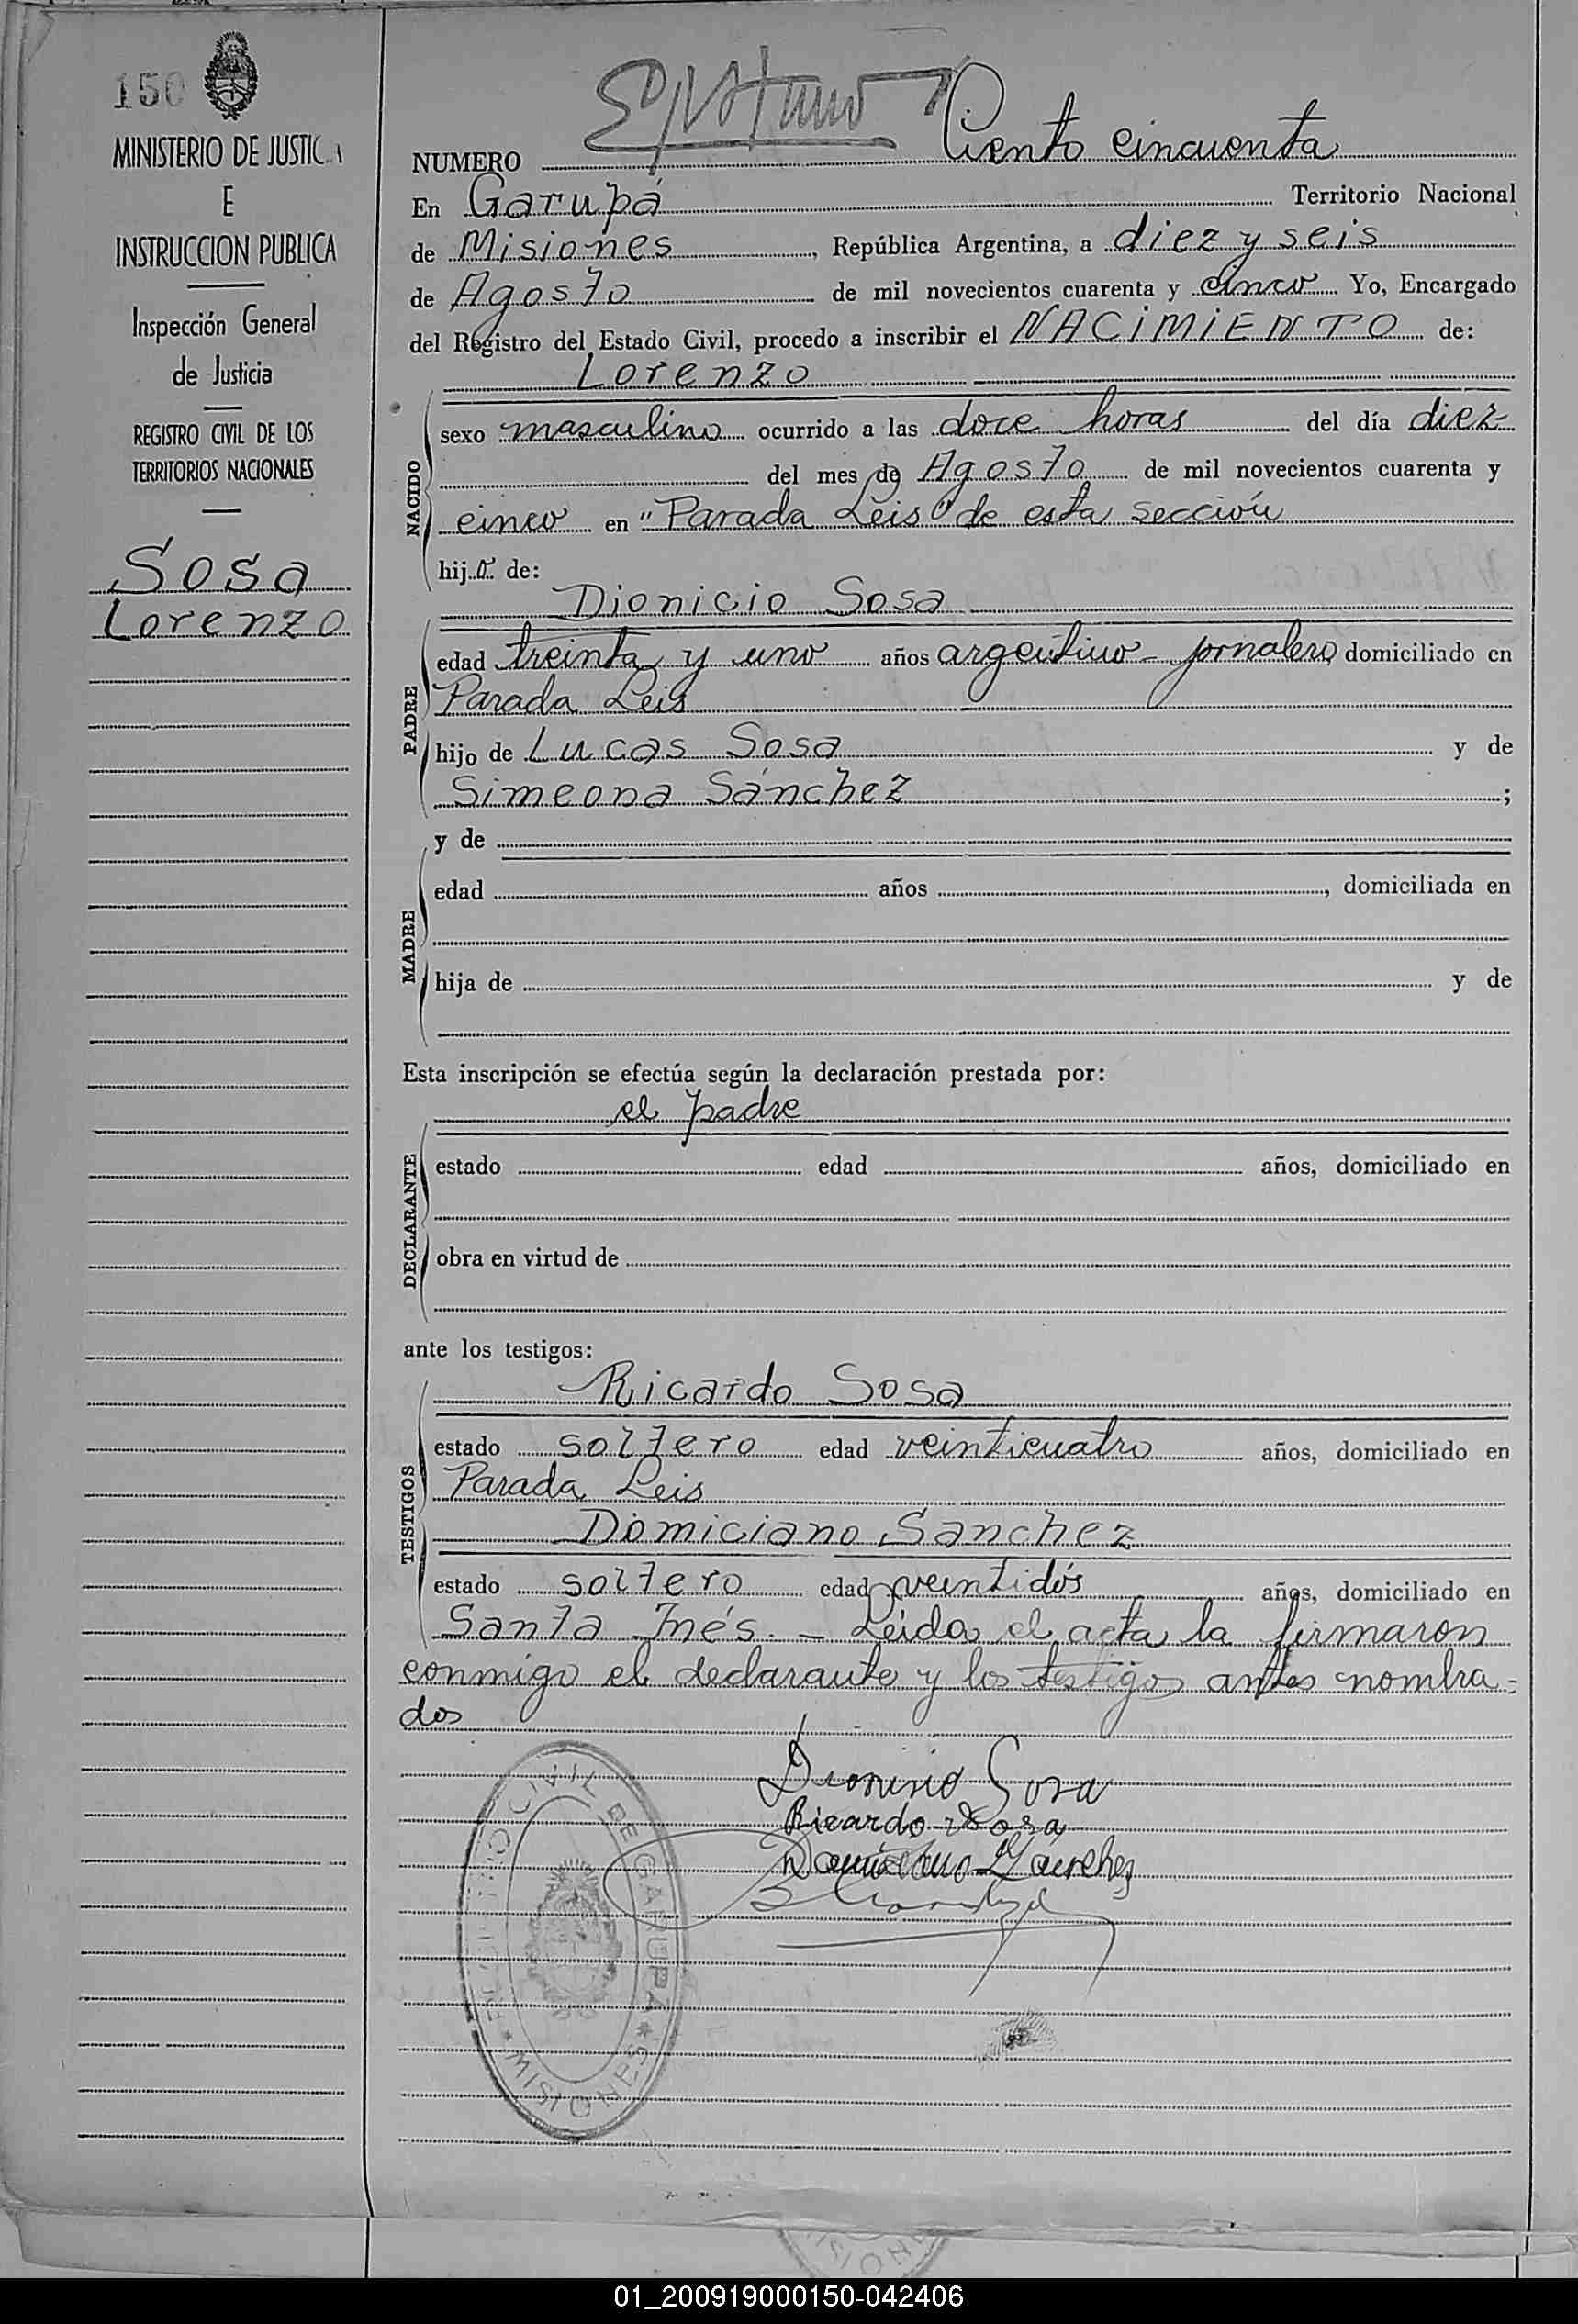 150
MINISTERIO DE JUSTICIA
E
INSTRUCCION PUBLICA
Inspección General
de Justicia
REGISTRO CIVIL DE LOS
TERRITORIOS NACIONALES
Sosa
Lorenzo
NUMERO Ciento cincuenta
En Garupá Territorio Nacional
de Misiones, República Argentina, a diez y seis
de Agosto de mil novecientos cuarenta y cinco Yo, Encargado
del Registro del Estado Civil, procedo a inscribir el NACIMIENTO de:
Lorenzo
NACIDO
sexo masculino ocurrido a las doce horas del día diez
del mes de Agosto de mil novecientos cuarenta y
cinco en "Parada Leis" de esta sección
hijo de:
Dionicio Sosa
PADRE
edad treinta y uno años argentino - jornalero domiciliado en
Parada Leis
hijo de Lucas Sosa y de
Simeona Sánchez ;
y de
MADRE
edad años , domiciliada en
hija de y de
Esta inscripción se efectúa según la declaración prestada por:
el padre
DECLARANTE
estado edad años, domiciliado en
obra en virtud de
ante los testigos:
Ricardo Sosa
TESTIGOS
estado soltero edad veinticuatro años, domiciliado en
Parada Leis
Domiciano Sanchez
estado soltero edad veintidós años, domiciliado en
Santa Inés. - Leida el acta la firmaron
conmigo el declarante y los testigos antes nombra=
dos
Dionisio Sosa
Ricardo Sosa
Domiciano Sanchez
CIVIL DE GARUPA * MISIONES *
01_200919000150-042406